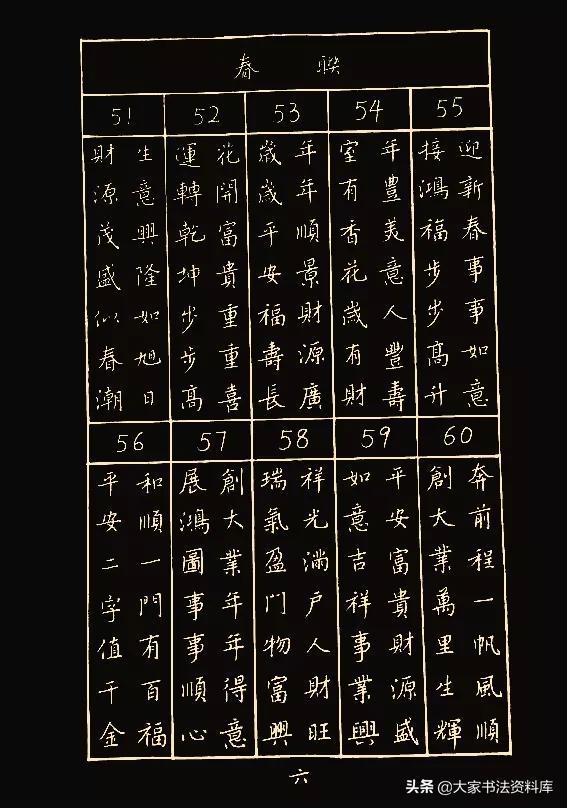 春 聯
51
生意興隆如旭日
財源茂盛似春潮
52
花開富貴重重喜
運轉乾坤步步高
53
年年順景財源廣
歲歲平安福壽長
54
年豐美意人豐壽
室有香花歲有財
55
迎新春事事如意
接鴻福步步高升
56
和順一門有百福
平安二字值千金
57
創大業年年得意
展鴻圖事事順心
58
祥光滿户人財旺
瑞氣盈门物富興
59
平安富貴財源盛
如意吉祥事業興
60
奔前程一帆風順
創大業萬里生輝
六
头条 @大家书法资料库